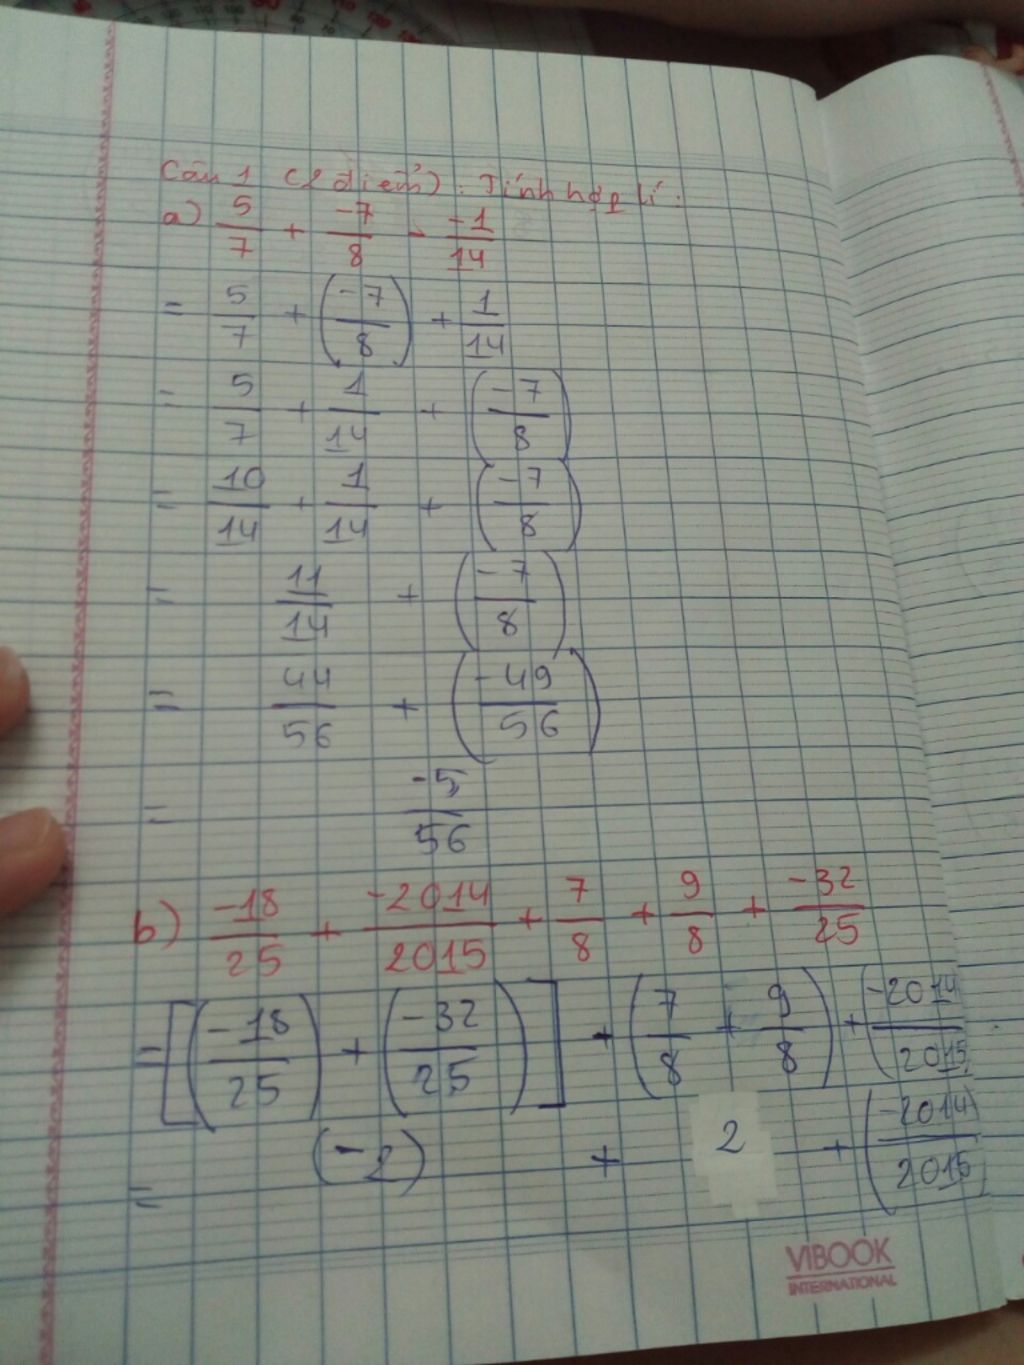 Câu 1 (2 điểm). Tính hợp lí:
a) 5/7 + -7/8 - -1/14
= 5/7 + (-7/8) + 1/14
= 5/7 + 1/14 + (-7/8)
= 10/14 + 1/14 + (-7/8)
= 11/14 + (-7/8)
= 44/56 + (-49/56)
= -5/56
b) -18/25 + -2014/2015 + 7/8 + 9/8 + -32/25
= [(-18/25) + (-32/25)] + (7/8 + 9/8) + (-2014/2015
= (-2) + 2 + (-2014/2015)
VIBOOK
INTERNATIONAL